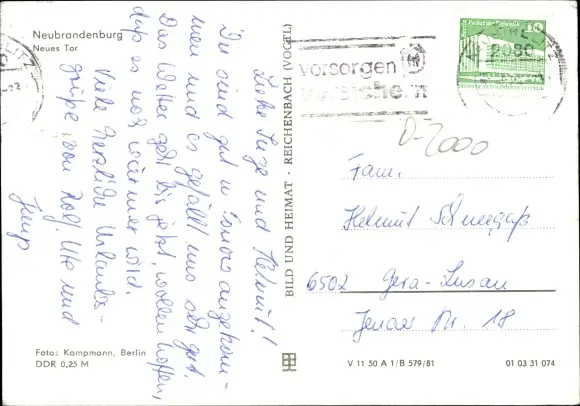 Neubrandenburg
Neues Tor
Liebe Inge und Helmut!
Wir sind gut in angekom-
men und es gefällt uns sehr gut.
Das Wetter geht bis jetzt, wollen hoffen,
daß es noch wärmer wird.
Viele herzliche Urlaubs-
grüße von Rolf, Ute und
Foto: Kampmann, Berlin
DDR 0,25 M
BILD UND HEIMAT · REICHENBACH (VOGTL)
vorsorgen
10
2080
D-2000
Fam.
Helmut
6502 Gera-Lusan
Jenaer Str. 18
V 11 50 A 1/B 579/81
01 03 31 074